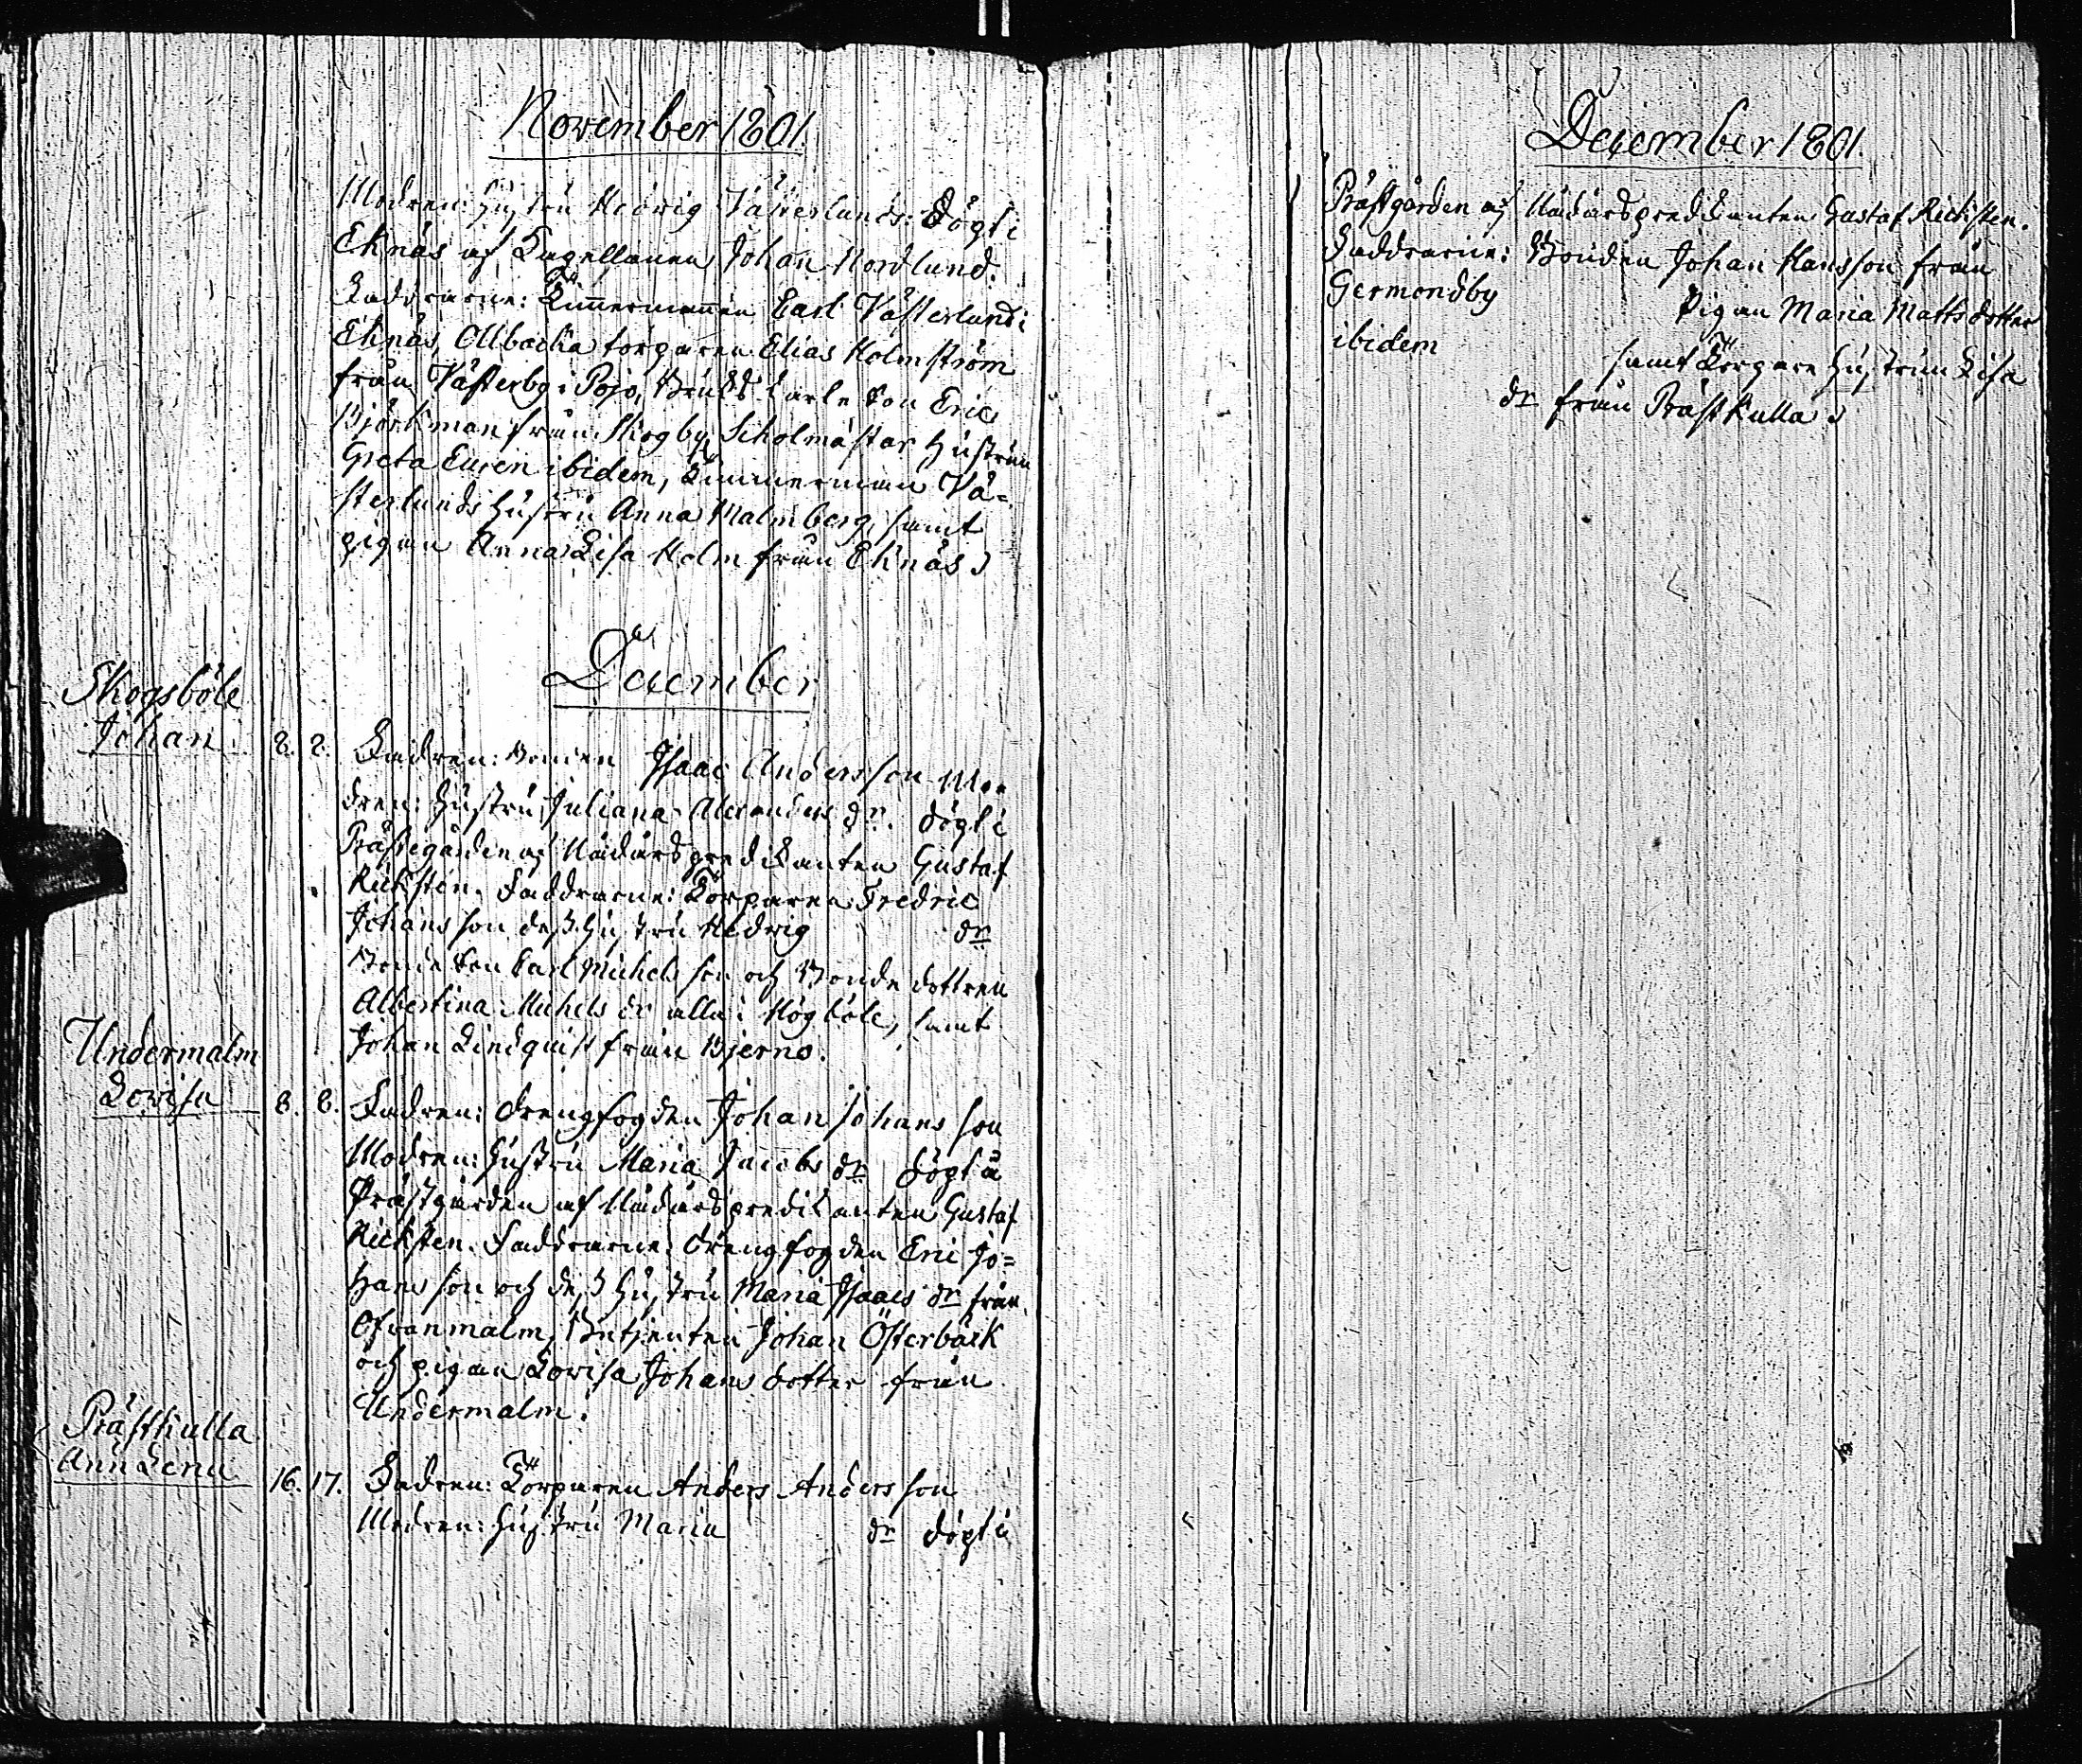 November 1801.
Modren: Hustru Hedvig Västerlund. Döpt i
Eknäs af Capellanen Johan Nordlund.
Faddrarne: Timmermannen Carl Västerlund i
Eknäs, Allbacka torparen Elias Holmström
från Västerby i Pojo, Bruks Karls son Eric
Björkman från Skogby, Scholmästar Hustrun
Greta Euren ibidem, Timmerman Vä-
sterlunds Hustru Anna Malmberg, samt
pigan Anna Lisa Holm från Eknäs.
December
Skogsböle
Johan
8. 8. Fadren: Bonden Isaac Andersson Mo-
dren: Hustru Juliana Alexanders dr. döpt i
Prästegården af Nådårspredikanten Gustaf
Ricksten. Faddrarne: Torparen Fredric
Johansson dess Hustru Hedvig dr
Bonde son Carl Michelsson och Bonde dottren
Albertina Michels dr alla i Högböle, samt
Johan Lindquist från Bjerno.
Undermalm
Lovisa
8. 8. Fadren: drengfogden Johan Johans son
Modren: Hustru Maria Jacobs dr döpt å
Prästgården af Nådårspredikanten Gustaf
Ricksten. Faddrarne: drengfogden Eric Jo-
hans son och dess Hustru Maria Isaacs dr från
Ofvanmalm, Betjenten Johan Österback
och pigan Lovisa Johans dotter från
Undermalm.
Prästkulla
Ann Lena
16. 17. Fadren: Torparen Anders Anders son
Modren: Hustru Maria dr döpt å
December 1801.
Prästgården af Nådårspredikanten Gustaf Ricksten.
Faddrarne: Bonden Johan Hansson från
Germundby Pigan Maria Matts dotter
ibidem samt Torpare Hustrun Lisa
dr från Prästkulla.